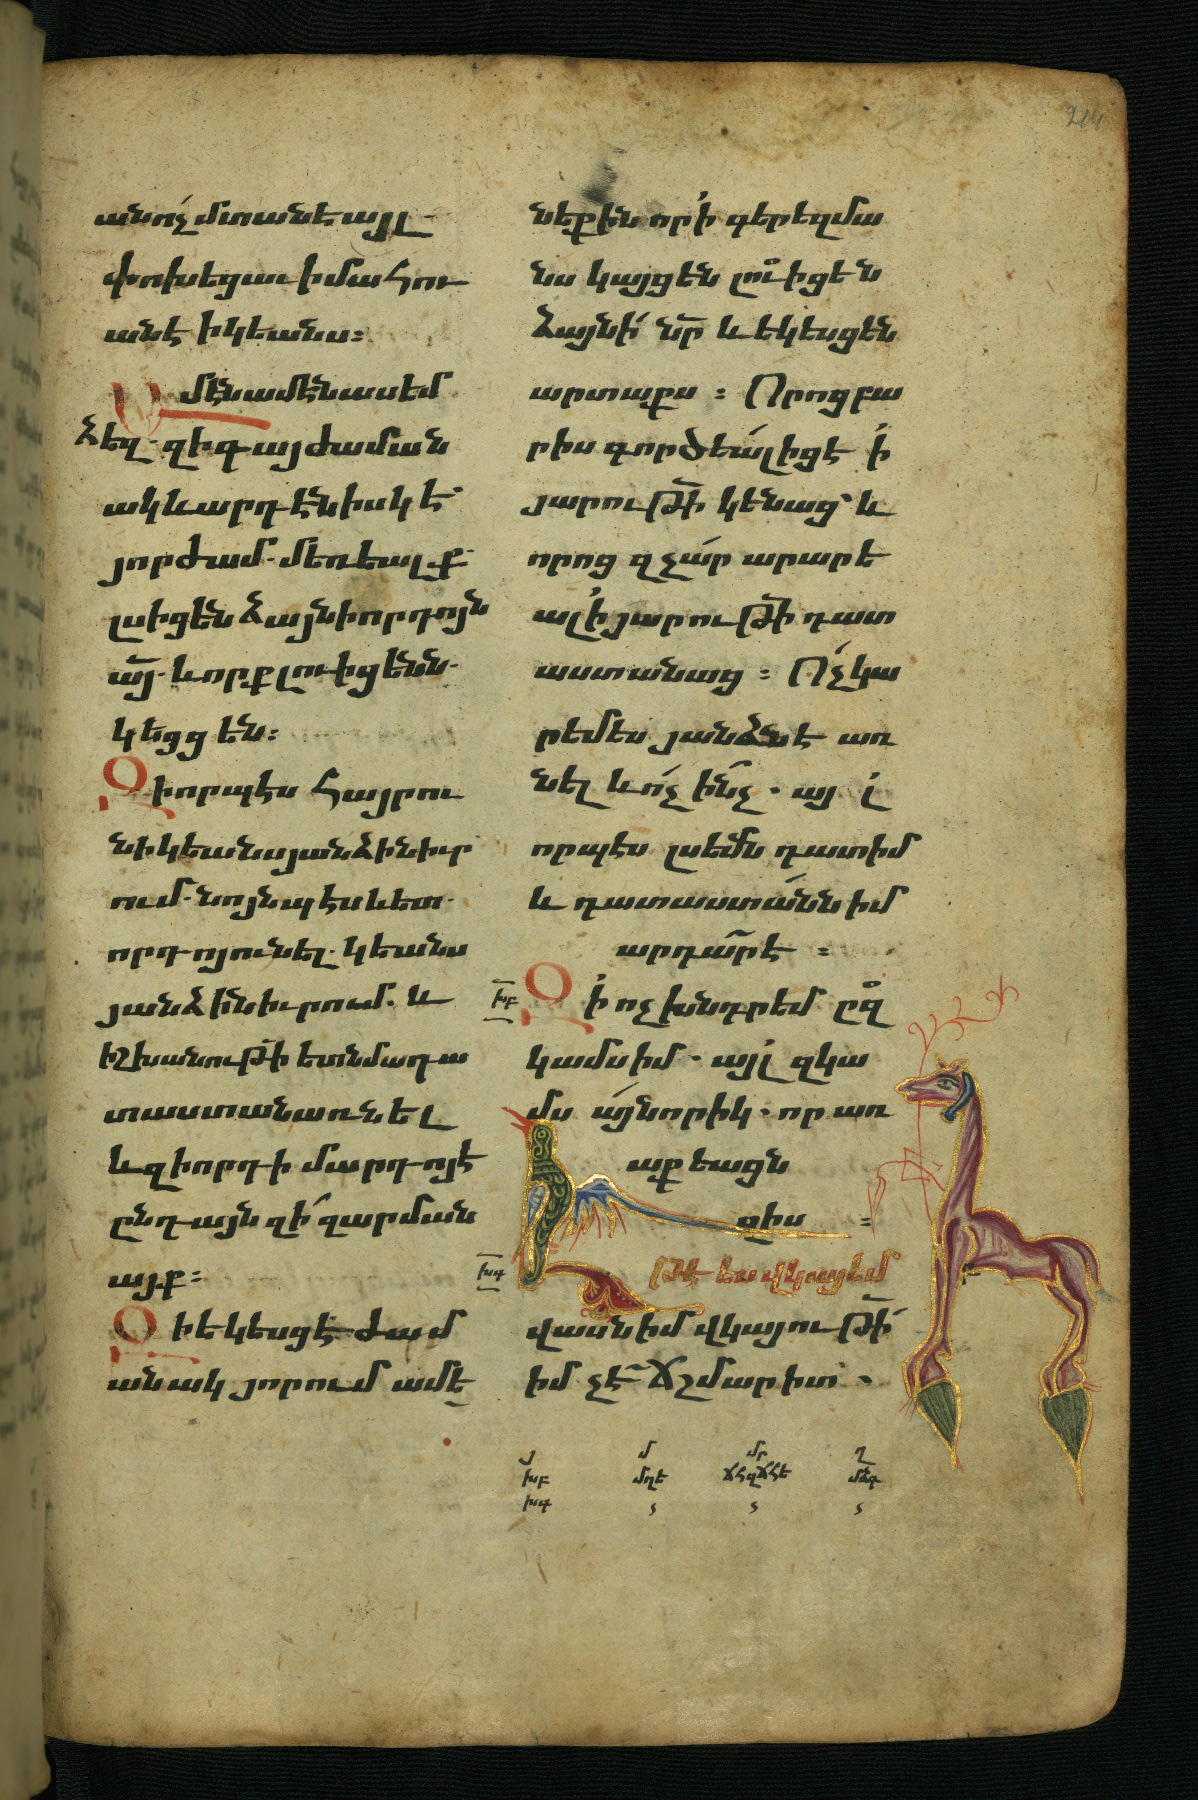 214
ան ո՛չ մտանէ այլ
փոխեցաւ ի մահու
անէ ի կեանս։
Ամէն ամէն ասեմ
ձեզ. զի գայ ժաման
ակ և արդ էն իսկ է՝
յորժամ. մեռեալք.
լսիցեն ձայնի որդոյն
ա՟յ. և որք լուիցենն.
կեցցեն։
Զի որպէս հայր ու
նի կեանս յանձին իւր
ում. նոյնպէս ետ.
որդոյ ունել. կեանս
յանձին իւրում. և
իշխանութի՟ ետ նմա դա
տաստան առնել
և զի որդի մարդոյ է
ընդ այն զի՞ զարման
այք։
Զի եկեսցէ ժամ
անակ յորում ամե
նեքին որ ի գերեզմա
նս կայցեն լո՟ւիցեն
ձայնի ն՟ր և եկեսցեն
արտաքս ։ Որոց բա
րիս գործեալ իցէ ի
յարութի՟ կենաց՝ և
որոց զչար արարե
ալ ի յարութի՟ դատ
աստանաց ։ Ո՛չ կա
րեմ ես յանձնէ առ
նել և ո՛չ ինչ . այլ
որպէս լսեմն դատիմ
և դատաստանն իմ
արդար է ։
խբ Զի ոչ խնդրեմ ը՟զ
կամս իմ . այլ զկա
մս այնորիկ . որ առ
աքեացն
զիս ։
խգ Թէ ես վկայեմ
վասն իմ վկայութի՟
իմ չէ ճշմարիտ .
յ մ մր ղ
խբ մղե ճհզ ճհե մձգ
խգ